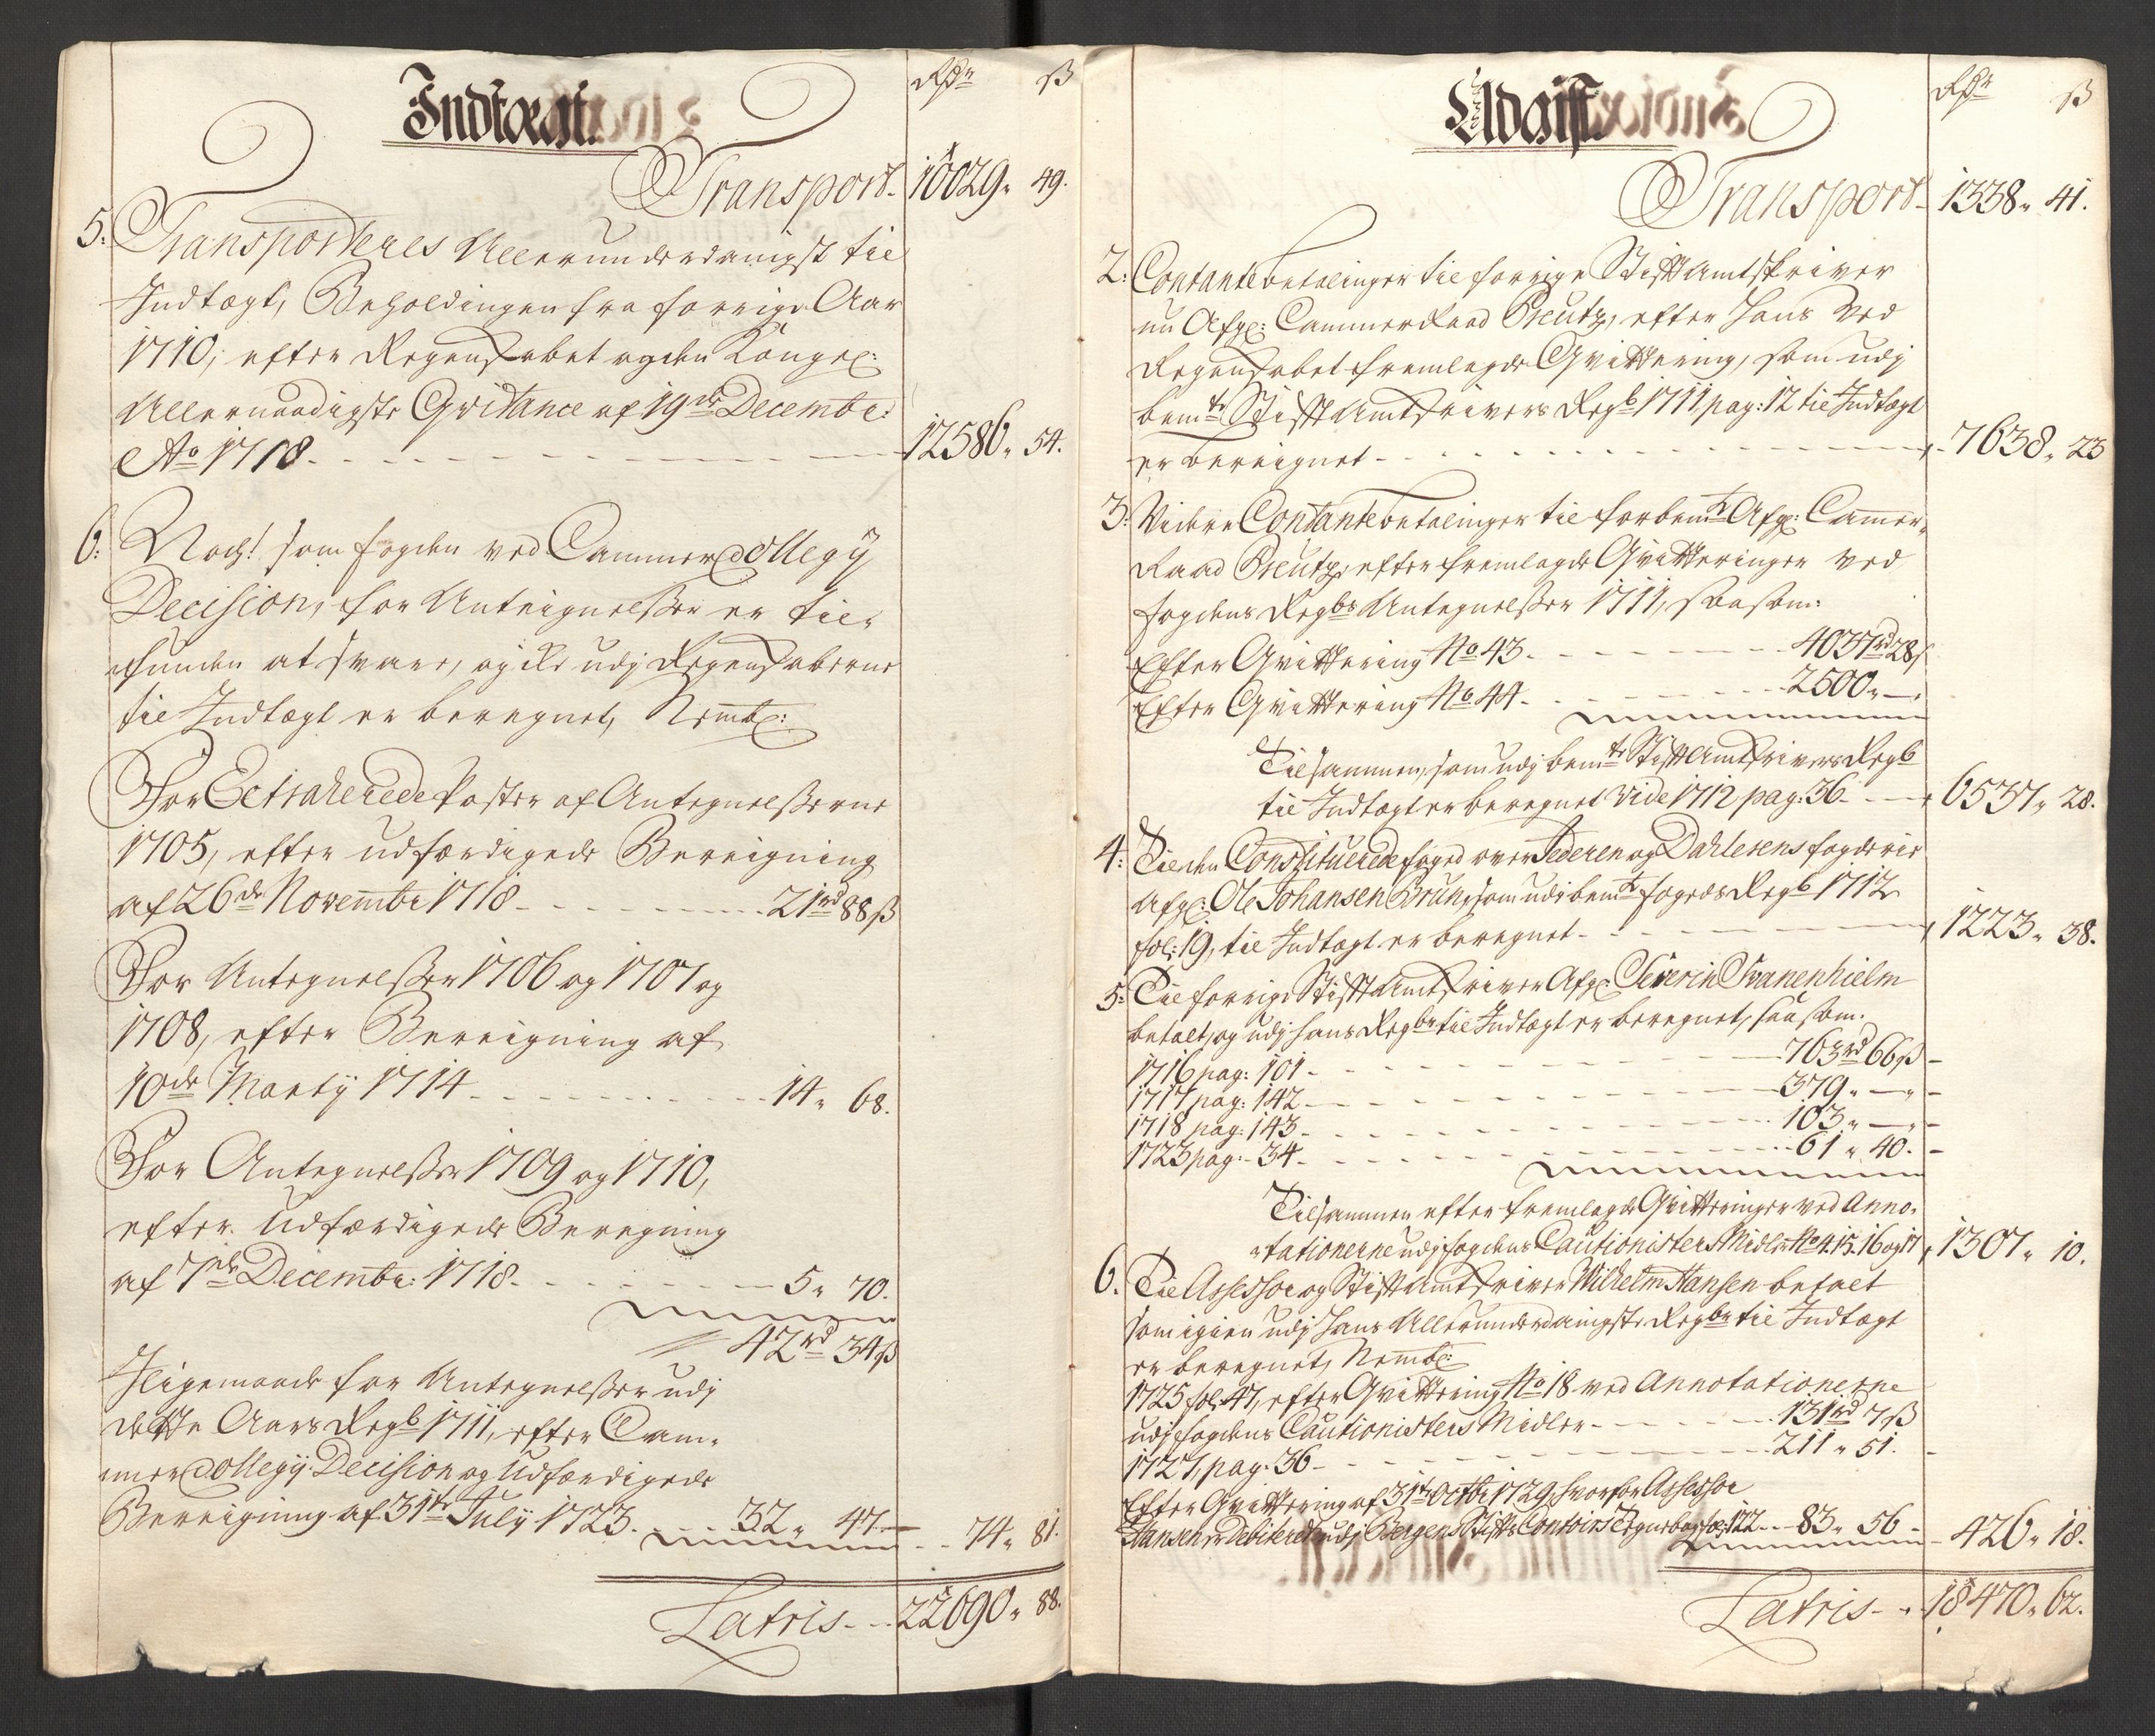 Indtægt.
Rdr ß
Transport - 10029 „ 49.
5: Transporteres Allerunderdanigst til
Indtægt, Beholdingen fra forrige Aar
1710, efter Regenskabet og den Kongel:
Allernaadigste Qvitance af 19de Decembr:
Ao 1718 - - - 12586 „ 54.
6: Noch! som fogden ved Cammer Collegij
Decision, for Anteignelsser er til„
„funden at svare, og ej udj Regenskaberne
til Indtægt er beregnet, Nembl:
For Extraherede Poster af Antegnelsserne
1705, efter udfærdigede Bereigning
af 26de Novembr 1718 - - - 21rd 88ß
For Antegnelsser 1706 og 1707 og
1708, efter Bereigning af
10de Martij 1714 - - - 14 „ 68.
For Antegnelsser 1709 og 1710,
efter udfærdigede Beregning
af 7de Decembr: 1718 - - - 5 „ 70.
42rd 34ß
Iligemaade for Antegnelsser udj
dette Aars Regb 1711, efter Cam„
„mer Collegij Decision og Udfærdigede
Bereigning af 31te Julij 1723 - - - 32 „ 47 - 74 „ 81.
Latris - - 22690 „ 88.
Udgift.
Rdr ß
Transport - 1338 „ 41.
2: Contante betalinger til forrige Stiftamtskriver
nu Afg: Cammerraad Creutz, efter hans ved
Regenskabet fremlagde Qvittering, som udj
bemte Stiftamtskrivers Regb 1711, pag: 12 til Indtægt
er bereignet - - - 7638 „ 23
3: Videre Contante betalinger til forbemte Afg: Cammer„
Raad Creutz, efter fremlagde Qvitteringer ved
fogdens Regbs Antegnelsser 1711, saasom:
Efter Qvittering No 43 - - - 4037rd 28ß
Efter Qvittering No 44 - - - 2500 „ —
Tilsammen, som udj bemte Stiftamtskrivers Regb
til Indtægt er beregnet vide 1712 pag: 36 - - 6537 „ 28.
4: Til den Constituerede foged over Jederen og Dahlerens fogderie
Afg: Ole Johansen Bruun, som udi bemte fogeds Regb 1712
fol: 19, til Indtægt er beregnet - - - 1223 „ 38.
5: Til forrige Stiftamtskriver Afg: Severin Svanenhielm
betalt, og udj hans Regbr til Indtægt er beregnet, saasom:
1716 pag: 101 - - - 763rd 66ß -
1717 pag: 142 - - - 379 „ — -
1718 pag: 143 - - - 103 „ — -
1723 pag: 34 - - - 61 „ 40. -
Tilsammen efter fremlagde Qvitteringer ved Anno„
„tationerne udj fogdens Cautionisters Midler No 4. 15. 16 og 17, 1307 „ 10.
6. Til Assessor og Stiftamtskriver Wilhelm Hansen betalt
som igien udj Hans Allerunderdanigste Regbr til Indtægt
er beregnet, Nembl:
1725 fol: 47, efter Qvittering No 18 ved Annotationerne
udj fogdens Cautionisters Midler - - - 131rd 7ß
1727, pag: 36 - - - 211 „ 51. -
Efter Qvittering af 31te Octbr 1729, hvorfor Assessor
Hansen er Debiteret udj Bergens Stifts Contoirs Bog fol: 122 - - 83 „ 56 - 426 „ 18.
Latris - - 18470 „ 62.